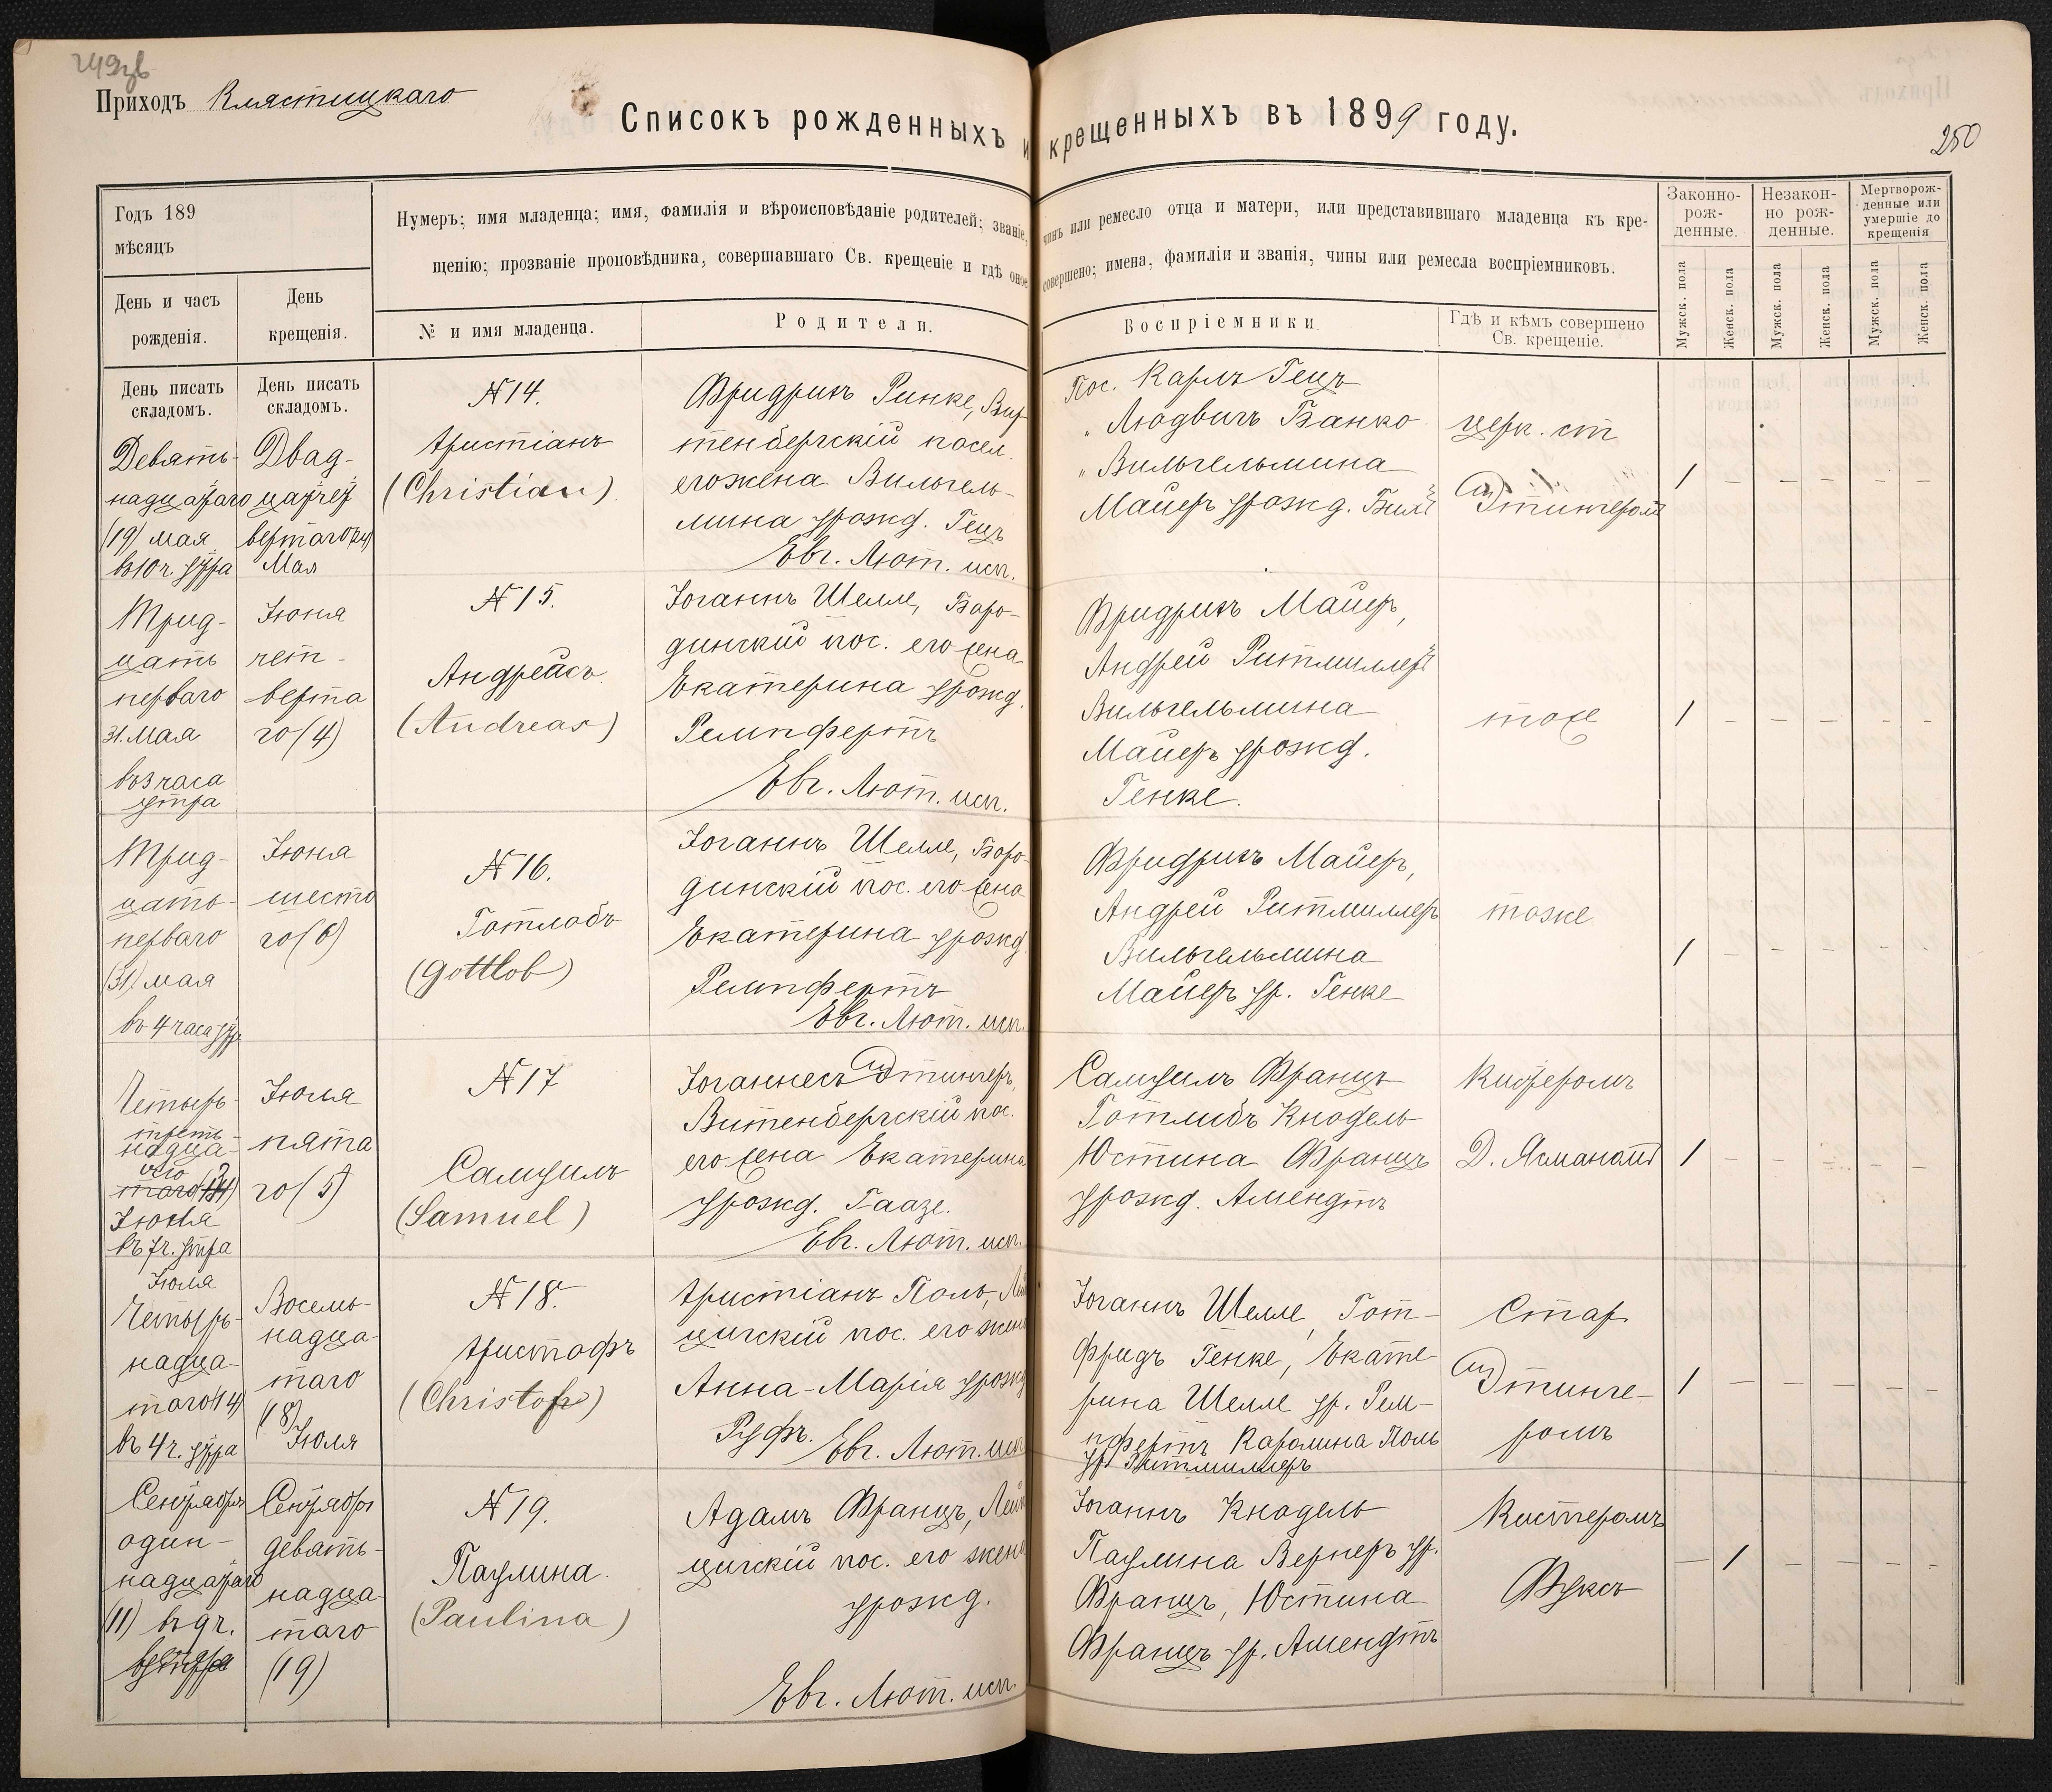 Приходъ Клястицкаго
Списокъ рожденныхъ и крещенныхъ въ 1899 году.
250
Годъ 189
мѣсяцъ
День и часъ
рожденія.
День
крещенія.
Нумеръ; имя младенца; имя, фамилія и вѣроисповѣданіе родителей; званіе, чинъ или ремесло отца и матери, или представившаго младенца къ кре-
щенію; прозваніе проповѣдника, совершавшаго Св. крещеніе и гдѣ оное совершено; имена, фамиліи и званія, чины или ремесла воспріемниковъ.
№ и имя младенца.
Родители.
Воспріемники
Гдѣ и кѣмъ совершено
Св. крещеніе.
Законно-
рож-
денные.
Незакон-
но рож-
денные.
Мертворож-
денные или
умершіе до
крещенія
Мужск. пола
Женск. пола
Мужск. пола
Женск. пола
Мужск. пола
Женск. пола
День писать
складомъ.
День писать
складомъ.
Девять-
надцатаго
(19) мая
въ 10 ч. утра
Двад-
цатчет
вертаго (24)
Мая
№ 14.
Христіанъ
(Christian)
Фридрихъ Ринке, Вир
тенбергскій посел.
его жена Вильгель-
мина урожд. Гецъ
Евг. Лют. исп.
Пос. Карлъ Гецъ
" Людвигъ Банко
" Вильгельмина
Майеръ урожд.
церк. ст
Этингеромъ
1 – – – – –
Трид-
цать
перваго
31. Мая
въ 3 часа
утра
Іюня
чет-
верта
го (4)
№ 15.
Андреасъ
(Andreas)
Іоганнъ Шелле, Боро-
динскій пос. его жена
Екатерина урожд.
Ремпфертъ
Евг. Лют. исп.
Фридрихъ Майеръ,
Андрей Ритмиллеръ
Вильгельмина
Майеръ урожд.
Генке.
тоже
1 – – – – –
Трид-
цать-
перваго
(31) мая
въ 4 часа утра
Іюня
шеста
го (6)
№ 16.
Готлобъ
(Gottlob)
Іоганнъ Шелле, Боро-
динскій пос. его жена
Екатерина урожд
Ремпфертъ
Евг. Лют. исп.
Фридрихъ Майеръ,
Андрей Ритмиллеръ
Вильгельмина
Майеръ ур. Генке
тоже
1 – – – – –
Четырь-
треть
надца-
Іюня
въ 7 ч. утра
Іюля
пята
го (5)
№ 17
Самуилъ
(Samuel)
Іоганнесъ Этингеръ,
Витенбергскій пос.
его жена Екатерина
урожд. Гаазе.
Евг. Лют. исп.
Самуилъ Францъ
Готлибъ Кнодель
Юстина Францъ
урожд. Амендтъ
Кистеромъ
Д.
1 – – – – –
Іюля
Четырь-
надца-
таго 14)
въ 4 ч. утра
Восемь-
надца-
таго
(18)
Іюля
№ 18.
Христофъ
(Christof)
Христіанъ Поль, Лей
цигскій пос. его жена
Анна-Марія урожд
Руфъ. Евг. Лют. исп
Іоганнъ Шелле, Гот-
фридъ Генке, Екате
рина Шелле ур. Рем-
пфертъ Каролина Поль
ур. Ритмиллеръ
Стар
Этинге-
ромъ
1 – – – – –
Сентября
один-
надцатаго
(11) въ 9 ч.
Сентября
девять-
надца
таго
(19)
№ 19.
Паулина.
(Paulina)
Адамъ Францъ, Лейп
цигскій пос. его жена
урожд.
Евг. Лют. исп.
Іоганнъ Кнодель
Паулина Вернеръ ур.
Францъ, Юстина
Францъ ур. Амендтъ
Кистеромъ
Фуксъ
– 1 – – – –